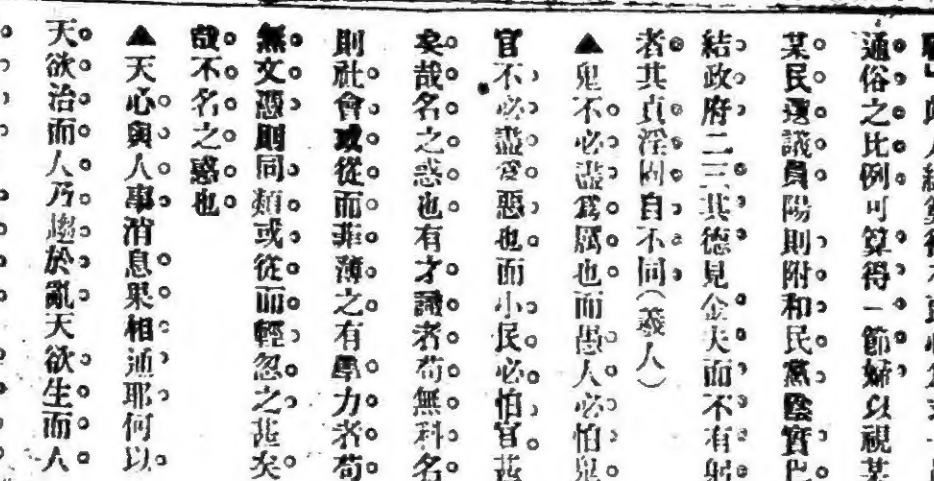 通俗之比例可算得一節婦以視某
某民選議員陽則附和民黨陰實巴
結政府二三其德見金夫而不有躬
者其貞淫固自不同(義人)
▲鬼不必盡爲厲也而愚人必怕鬼
官不必盡爲惡也而小民必怕官甚
矣哉名之惑也有才識者苟無科名
則社會或從而菲薄之有學力者苟
無文憑則同類或從而輕忽之甚矣
哉不名之惑也
▲天心與人事消息果相通耶何以
天欲治而人乃趨於亂天欲生而人